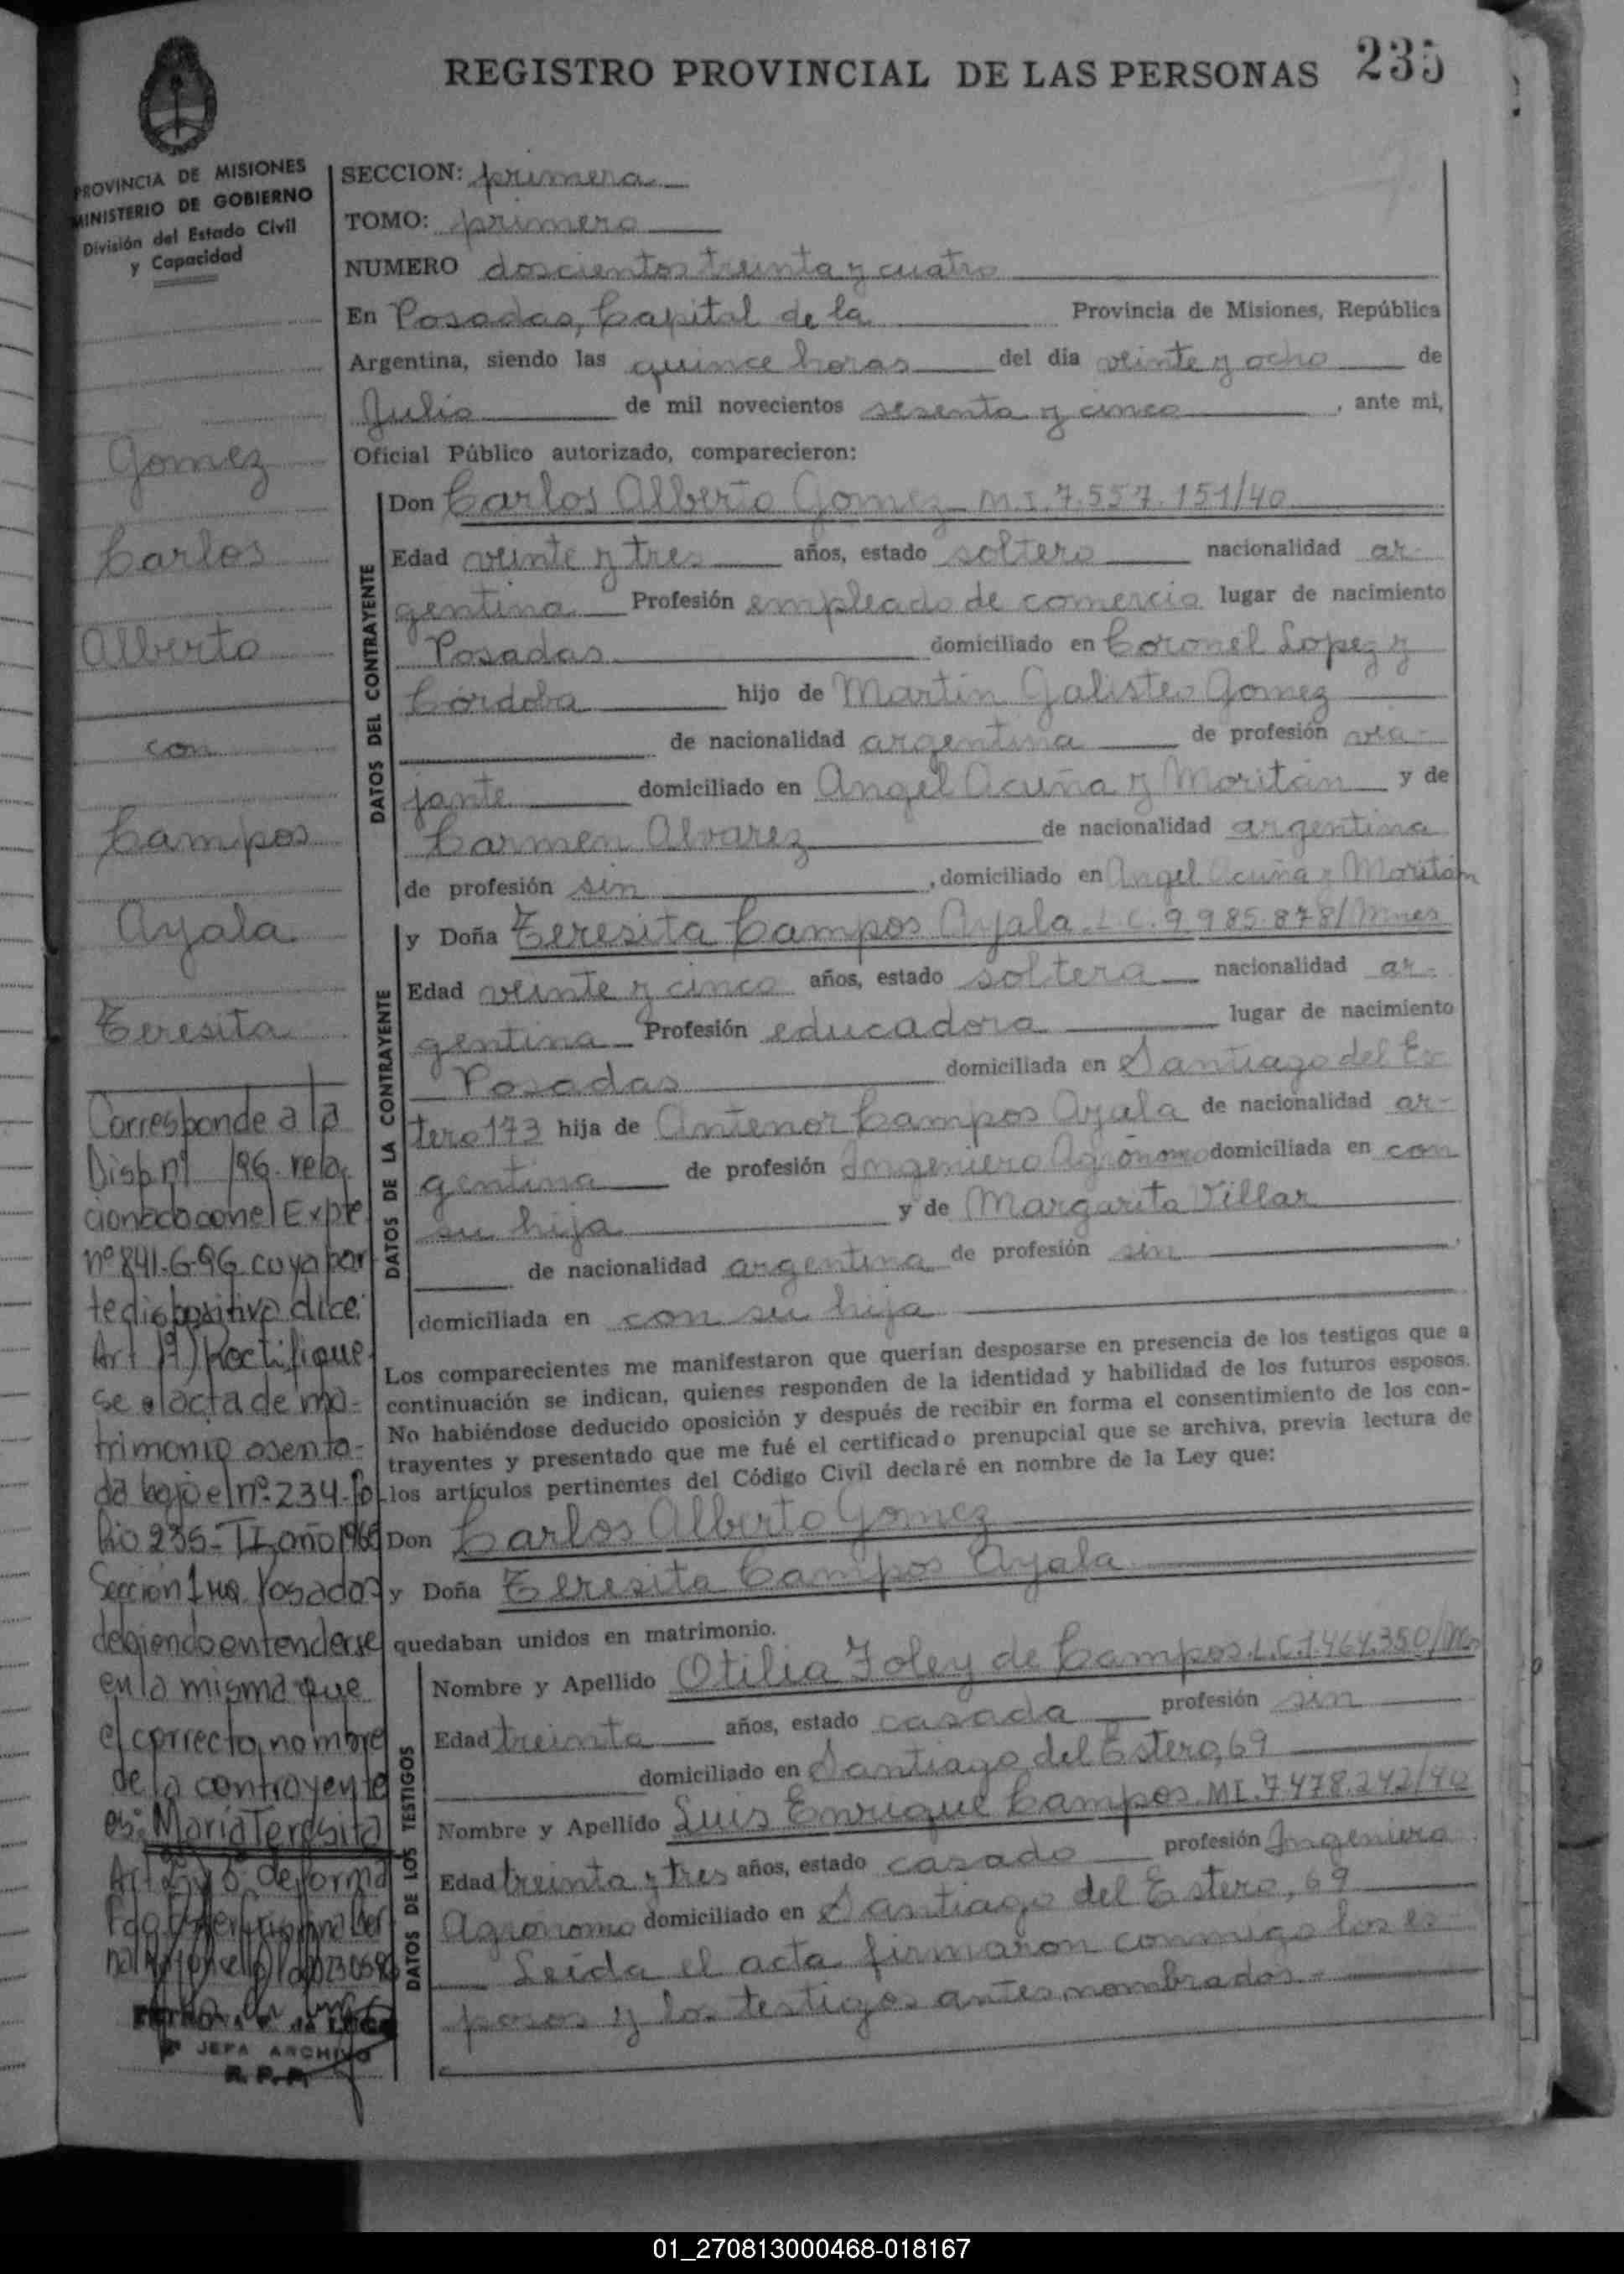 REGISTRO PROVINCIAL DE LAS PERSONAS 235
PROVINCIA DE MISIONES
MINISTERIO DE GOBIERNO
División del Estado Civil
y Capacidad
Gomez
Carlos
Alberto
con
Campos
Ayala
Teresita
Corresponde a la
Disp nº 196 rela
cionado con el Expte
nº 841-G-96 cuya par
te dispositiva dice:
Art 1º) Rectifique
se el acta de ma-
trimonio asenta-
da bajo el nº 234-Fo
lio 235-TI, año 1965
Sección 1ra Posadas
debiendo entenderse
en la misma que
el correcto nombre
de la contrayente
es: María Teresita
Art 2º y 3º de forma
JEFA ARCHIVO
R. P. P.
SECCION: primera
TOMO: primero
NUMERO doscientos treinta y cuatro
En Posadas, Capital de la Provincia de Misiones, República
Argentina, siendo las quince horas del día veinte y ocho de
Julio de mil novecientos sesenta y cinco, ante mi,
Oficial Público autorizado, comparecieron:
DATOS DEL CONTRAYENTE
Don Carlos Alberto Gomez M.I. 7.557.151/40
Edad veinte y tres años, estado soltero nacionalidad ar-
gentina Profesión empleado de comercio lugar de nacimiento
Posadas domiciliado en Coronel Lopez y
Córdoba hijo de Martin Galisteo Gomez
de nacionalidad argentina de profesión via-
jante domiciliado en Angel Acuña y Moritán y de
Carmen Alvarez de nacionalidad argentina
de profesión sin, domiciliado en Angel Acuña y Moritán
DATOS DE LA CONTRAYENTE
y Doña Teresita Campos Ayala L.C. 9.985.878/Mnes
Edad veinte y cinco años, estado soltera nacionalidad ar-
gentina Profesión educadora lugar de nacimiento
Posadas domiciliada en Santiago del Es-
tero 173 hija de Antenor Campos Ayala de nacionalidad ar-
gentina de profesión Ingeniero Agrónomo domiciliada en con
su hija y de Margarita Villar
de nacionalidad argentina de profesión sin,
domiciliada en con su hija
Los comparecientes me manifestaron que querían desposarse en presencia de los testigos que a
continuación se indican, quienes responden de la identidad y habilidad de los futuros esposos.
No habiéndose deducido oposición y después de recibir en forma el consentimiento de los con-
trayentes y presentado que me fué el certificado prenupcial que se archiva, previa lectura de
los artículos pertinentes del Código Civil declaré en nombre de la Ley que:
Don Carlos Alberto Gomez
y Doña Teresita Campos Ayala
quedaban unidos en matrimonio.
DATOS DE LOS TESTIGOS
Nombre y Apellido Otilia Foley de Campos L.C. 1.464.350/Mns
Edad treinta años, estado casada profesión sin
domiciliado en Santiago del Estero, 69
Nombre y Apellido Luis Enrique Campos MI. 7.478.242/40
Edad treinta y tres años, estado casado profesión Ingeniero
Agronomo domiciliado en Santiago del Estero, 69
Leída el acta firmaron conmigo los es-
posos y los testigos antes nombrados.-
01_270813000468-018167